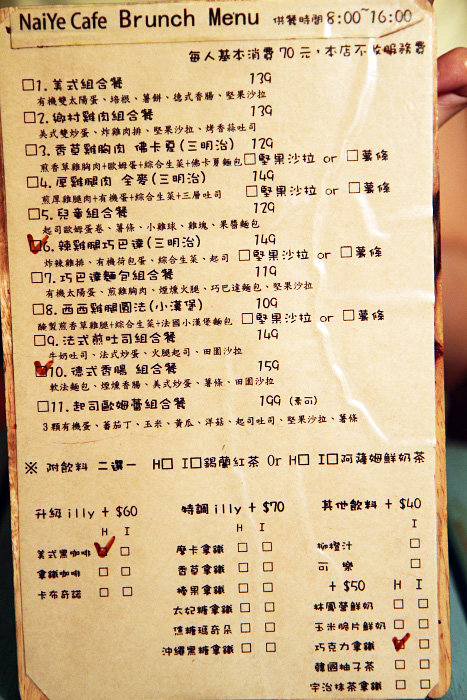 NaiYe Cafe Brunch Menu 供餐時間 8:00~16:00
每人基本消費70元,本店不收服務費
1. 美式組合餐 139
有機雙太陽蛋、培根、薯餅、德式香腸、堅果沙拉
2. 鄉村雞肉組合餐 139
美式雙炒蛋、炸雞肉排、堅果沙拉、烤香蒜吐司
3. 香草雞胸肉 佛卡夏(三明治) 129
煎香草雞胸肉+歐姆蛋+綜合生菜+佛卡夏麵包 堅果沙拉 or 薯條
4. 厚雞腿肉 全麥(三明治) 149
煎厚雞腿肉+有機蛋+綜合生菜+三層吐司 堅果沙拉 or 薯條
5. 兒童組合餐 129
起司歐姆蛋卷、薯條、小雞球、雞塊、果醬麵包
6. 辣雞腿巧巴達(三明治) 149
炸辣雞排、有機荷包蛋、綜合生菜、起司 堅果沙拉 or 薯條
7. 巧巴達麵包組合餐 119
有機太陽蛋、煎雞胸肉、煙燻火腿、巧巴達麵包、堅果沙拉
8. 西西雞腿圓法(小漢堡) 109
醃製煎香草雞腿+綜合生菜+法國小漢堡麵包 堅果沙拉 or 薯條
9. 法式煎吐司組合餐 149
牛奶吐司、法式炒蛋、火腿起司、田園沙拉
10. 德式香腸 組合餐 159
軟法麵包、煙燻香腸、美式炒蛋、薯條、田園沙拉
11. 起司歐姆蕾組合餐 199 (素可)
3顆有機蛋、蕃茄丁、玉米、黃瓜、洋菇、起司吐司、堅果沙拉、薯條
※ 附飲料 二選一 H I 錫蘭紅茶 Or H I 阿薩姆鮮奶茶
升級 illy + $60
H I
美式黑咖啡
拿鐵咖啡
卡布奇諾
特調 illy + $70
H I
摩卡拿鐵
香草拿鐵
榛果拿鐵
太妃糖拿鐵
焦糖瑪奇朵
沖繩黑糖拿鐵
其他飲料 + $40
I
柳橙汁
可樂
+ $50 H I
林鳳營鮮奶
玉米脆片鮮奶
巧克力拿鐵
韓國柚子茶
宇治抹茶拿鐵